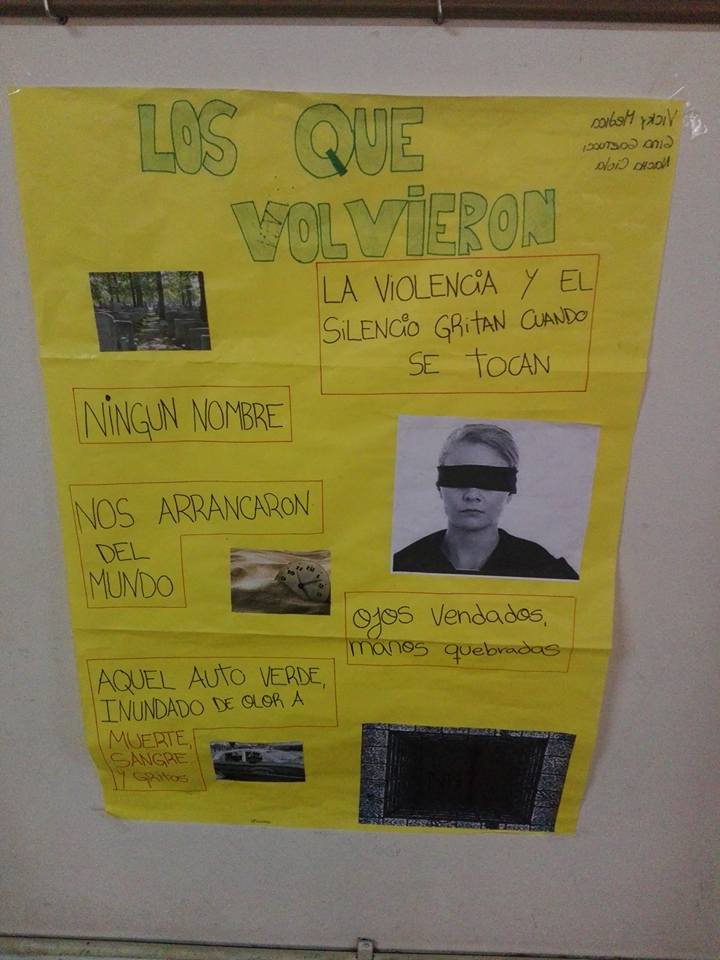 LOS QUE
VOLVIERON
Vicky Medica
LA VIOLENCIA Y EL
SILENCIO GRITAN CUANDO
SE TOCAN
NINGUN NOMBRE
NOS ARRANCARON
DEL
MUNDO
OJOS VENDADOS,
MANOS QUEBRADAS
AQUEL AUTO VERDE,
INUNDADO DE OLOR A
MUERTE,
SANGRE
Y GRITOS